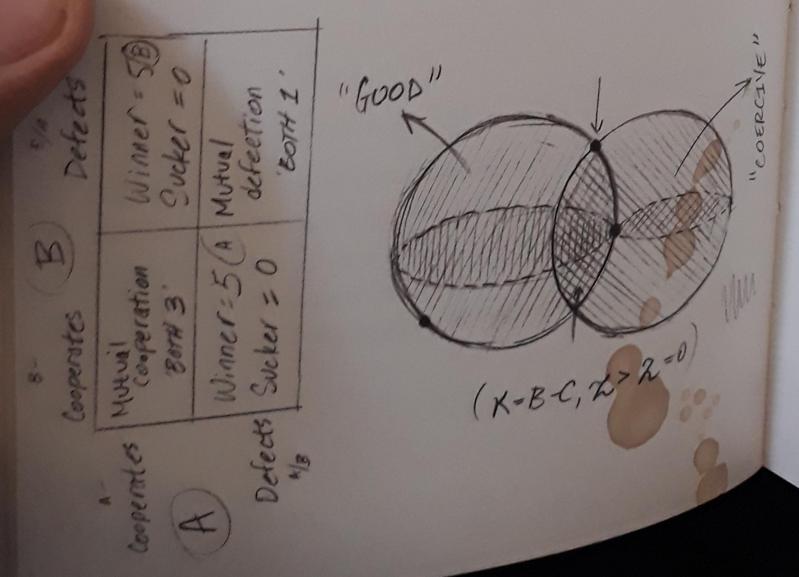 B
B-
Cooperates
Defects
A-
Cooperates
Mutual
Cooperation
'BOTH 3'
Winner = 5 B
Sucker = 0
A
Defects
A/B
Winner = 5 A
Sucker = 0
Mutual
defection
'BOTH 1'
"GOOD"
"COERCIVE"
(K=B-C, Z > Z=0)